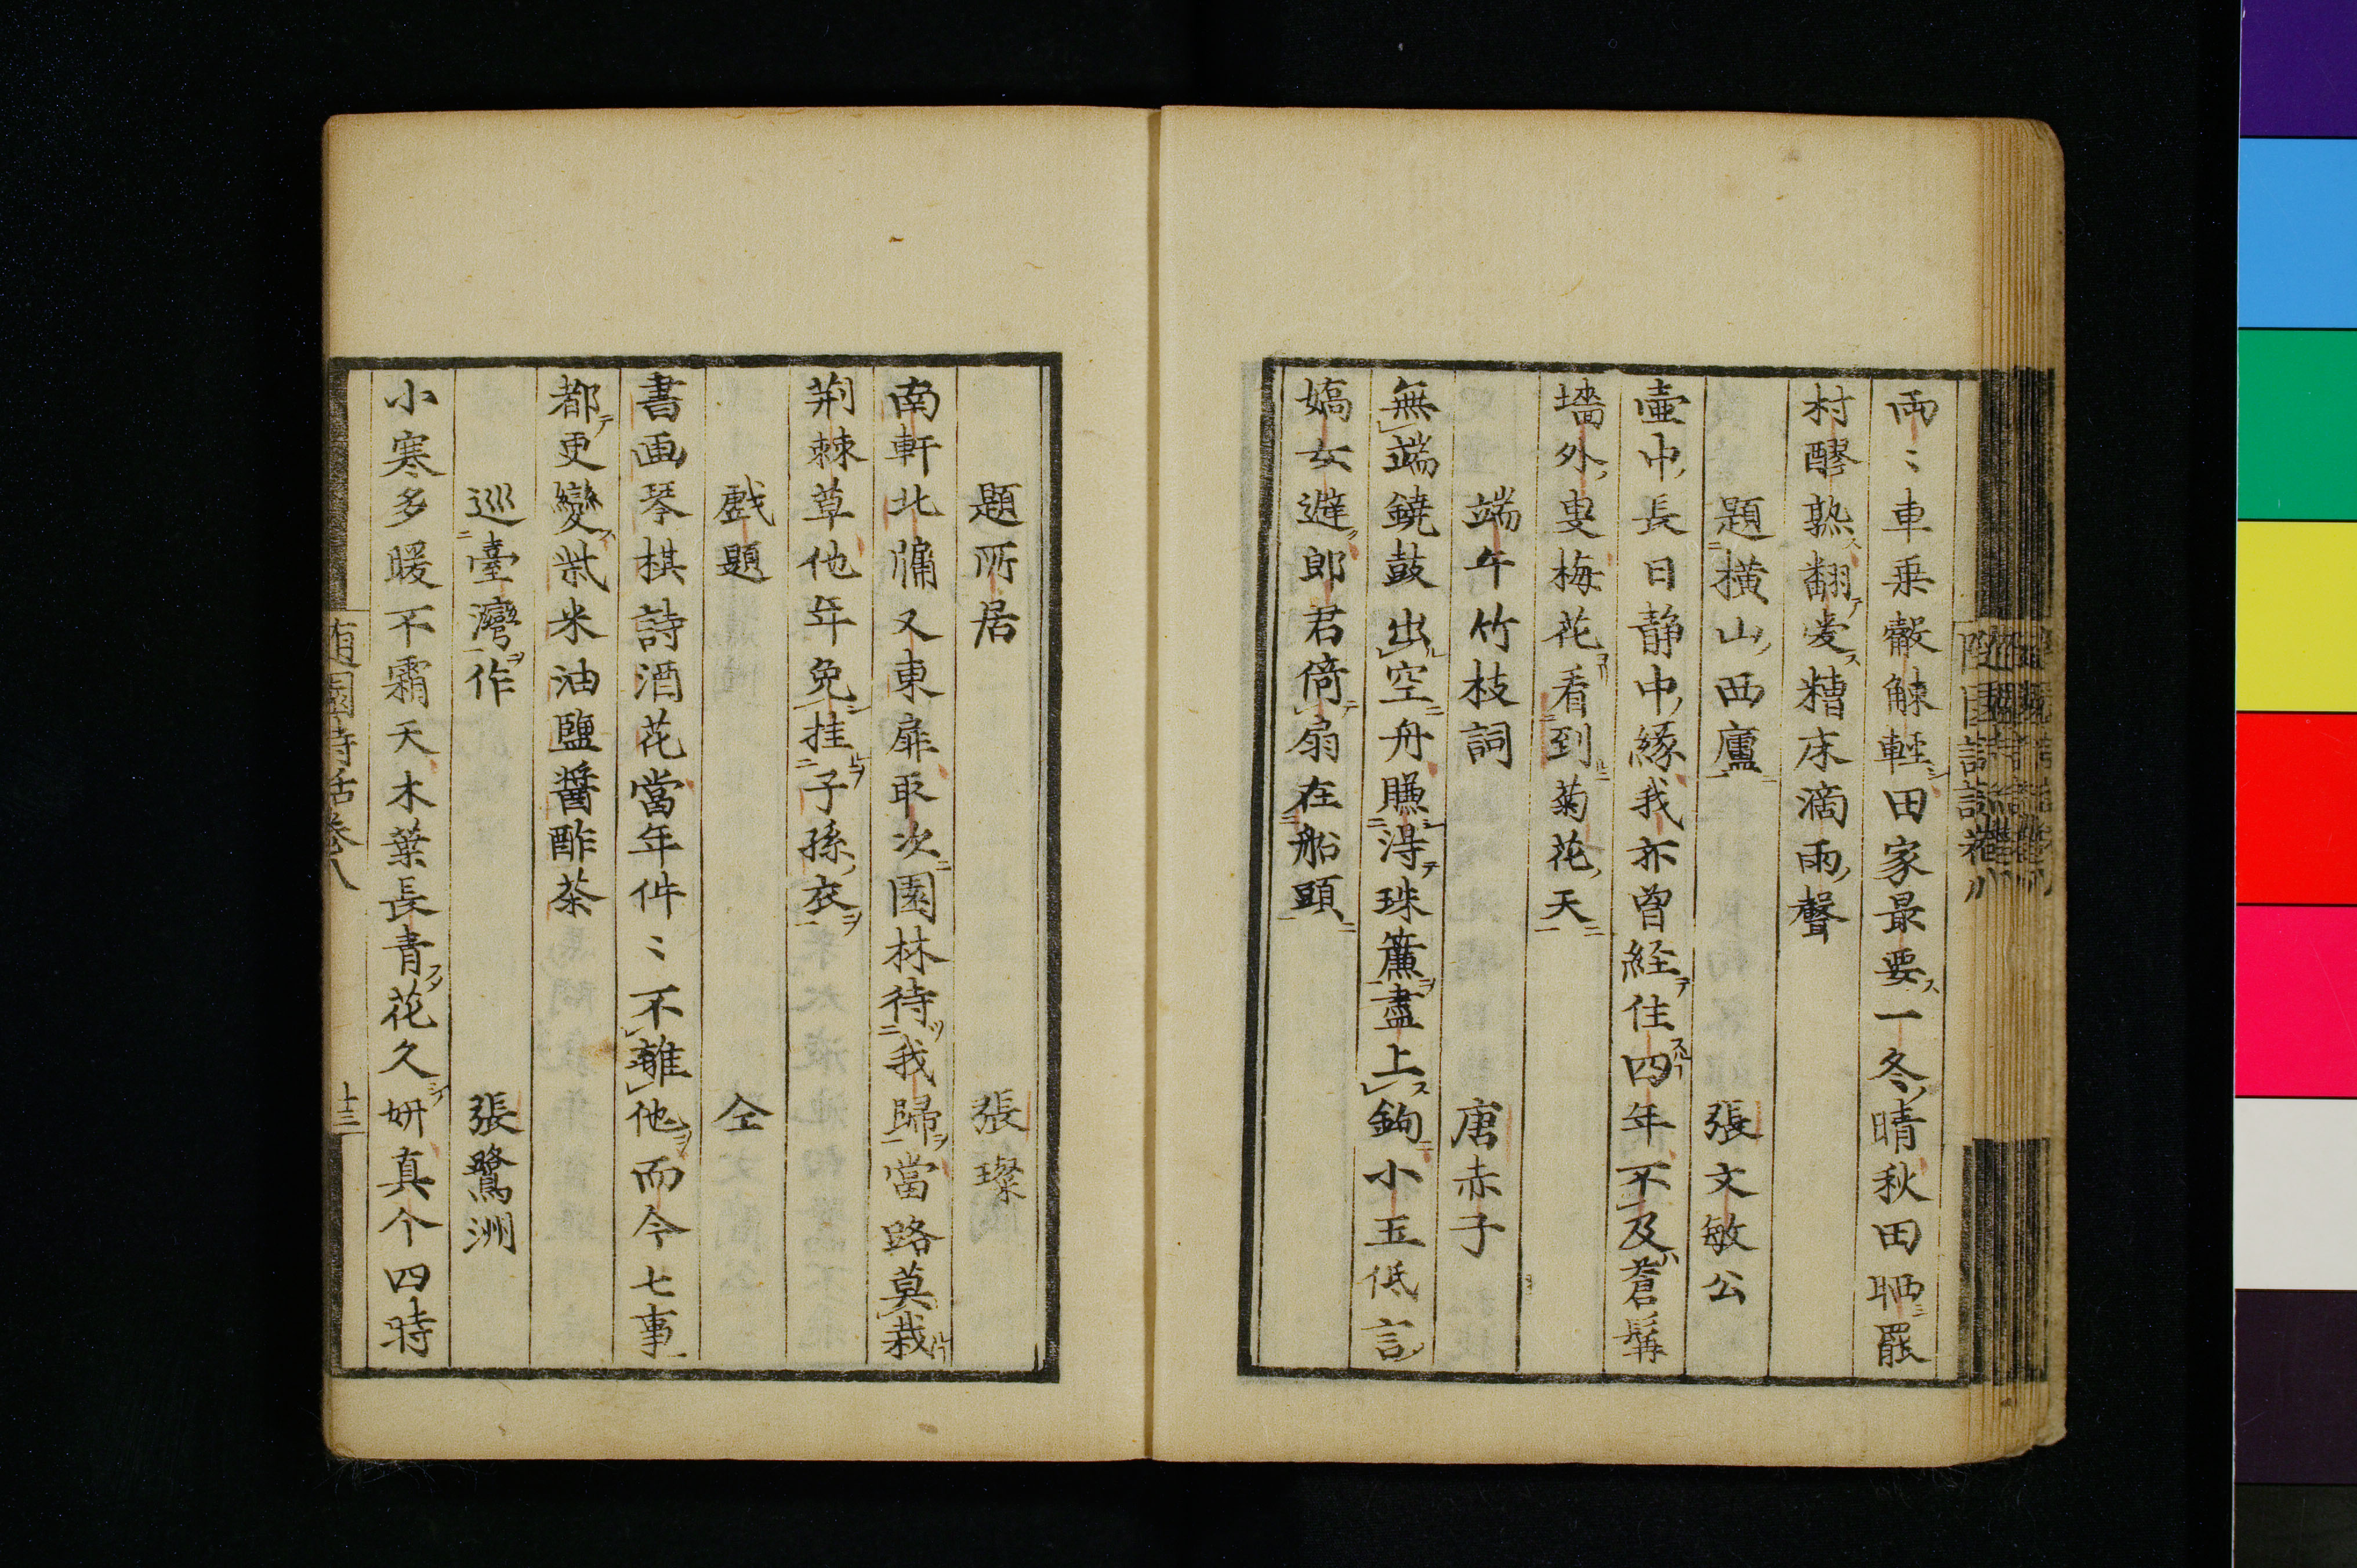 両〻車乗轂觫輕田家最要一冬晴秋田晒罷
村醪熟翻愛糟床滴雨聲
題橫山西廬　張文敏公
壷中長日静中緣我亦曽経住四年不及蒼髯
墻外叟梅花看到菊花天
端午竹枝詞　唐赤子
無端鐃鼓出空舟賺得珠簾盡上鉤小玉低言
嬌女避郎君倚扇在船頭
題所居　張璨
南軒北牖又東扉取次園林待我歸當路莫栽
荆棘草他年免挂子孫衣
戯題　仝
書画琴棋詩酒花當年件〻不離他而今七事
都更變柴米油鹽醤酢茶
巡臺灣作　張鷺洲
小寒多暖不霜天木葉長青花久妍真个四時
随園詩話卷八　十三